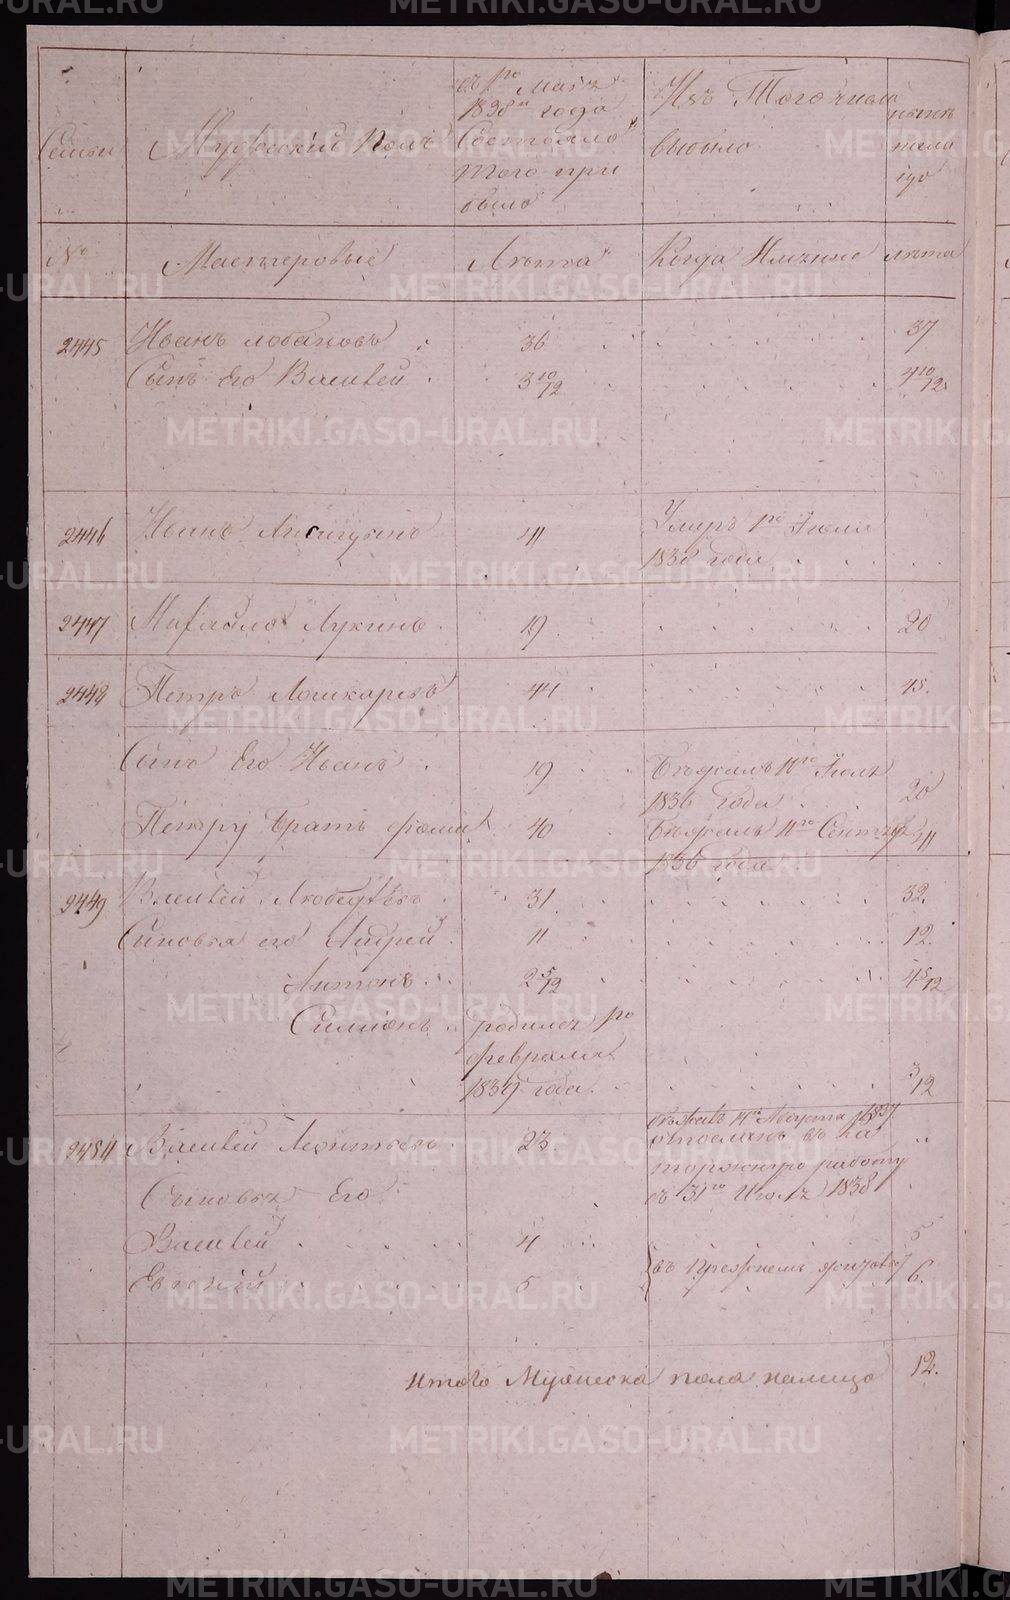 Семьи
Мужеский полъ
съ 1го Маія
1838го года
Состояло
того при
было
Изъ Того числа
выбыло
нынѣ
на ли
цо
№
Мастеровые
Лѣта
Когда Имянно
лѣта
2445 Иванъ лобановъ 36 37
Сынъ Его Василей 3 10/12 4 10/12
2446 Иванъ 41 Умеръ 1го Іюля
1838 года
2447 Михайло Лукинъ 19 20
2448 Петръ Лошкаревъ 44 45.
Сынъ Его Иванъ 19 Бѣжалъ 11го Іюля 20
1836 года
Петру братъ фома 40 Бѣжалъ 11го Сентяб 41
1836 года
2449 Василей 31 32.
Сыновья его Андрей 11 12.
Антонъ 2 5/12 4 5/12
Симионъ родился
февраля
1839 года 3/12
Василей Леонтьевъ 23 бѣжалъ 14го Августа 1837.
отосланъ въ ка
торжную работу
съ 31го Июля 1838
Сыновья Его
Василей 4 5
Евгений 5 въ прежнемъ 6.
итого Мужеска пола налицо 12.
METRIKI.GASO-URAL.RU